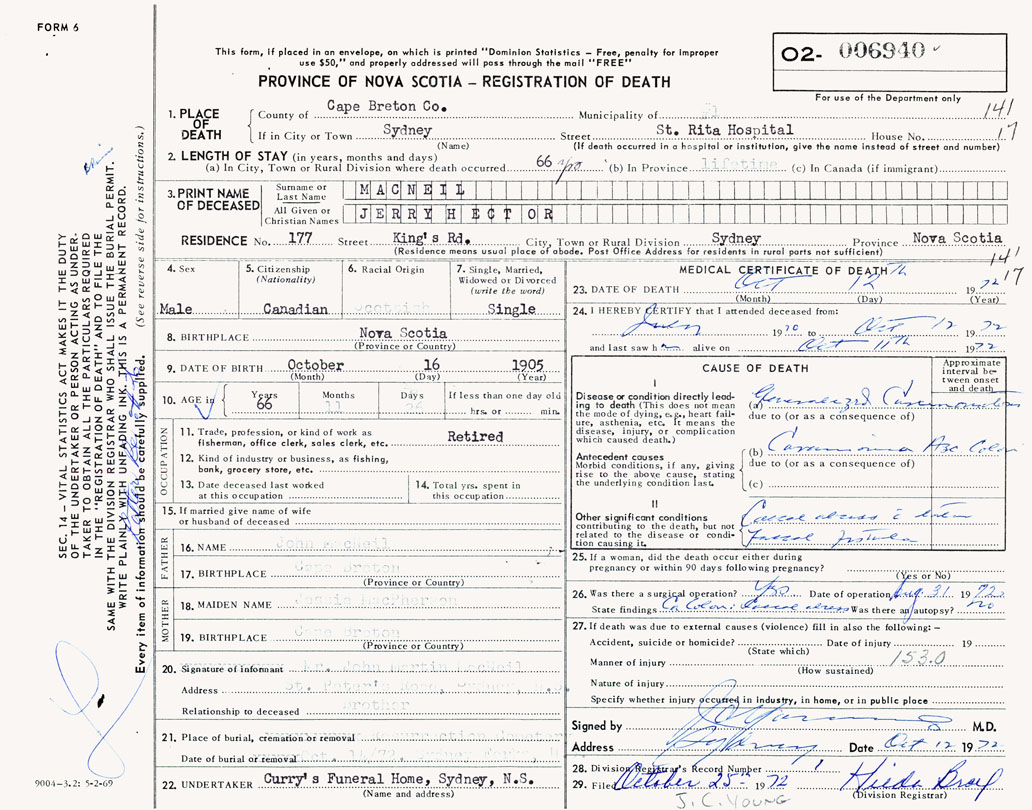 FORM 6
This form, if placed in an envelope, on which is printed "Dominion Statistics – Free, penalty for improper
use $50," and properly addressed will pass through the mail "FREE"
PROVINCE OF NOVA SCOTIA – REGISTRATION OF DEATH
02- 006940
For use of the Department only
141
17
1. PLACE OF DEATH
County of Cape Breton Co. Municipality of
If in City or Town Sydney Street St. Rita Hospital House No.
(Name) (If death occurred in a hospital or institution, give the name instead of street and number)
2. LENGTH OF STAY (in years, months and days)
(a) In City, Town or Rural Division where death occurred 66 (b) In Province lifetime (c) In Canada (if immigrant)
3. PRINT NAME OF DECEASED
Surname or Last Name MACNEIL
All Given or Christian Names JERRY HECTOR
RESIDENCE No. 177 Street King's Rd. City, Town or Rural Division Sydney Province Nova Scotia
(Residence means usual place of abode. Post Office Address for residents in rural parts not sufficient)
141
17
4. Sex
Male
5. Citizenship
(Nationality)
Canadian
6. Racial Origin
Scottish
7. Single, Married,
Widowed or Divorced
(write the word)
Single
8. BIRTHPLACE Nova Scotia
(Province or Country)
9. DATE OF BIRTH October 16 1905
(Month) (Day) (Year)
10. AGE in Years 66 Months 11 Days 26 If less than one day old
hrs. or min.
OCCUPATION
11. Trade, profession, or kind of work as
fisherman, office clerk, sales clerk, etc. Retired
12. Kind of industry or business, as fishing,
bank, grocery store, etc.
13. Date deceased last worked
at this occupation
14. Total yrs. spent in
this occupation
15. If married give name of wife
or husband of deceased
FATHER
16. NAME John MacNeil
17. BIRTHPLACE Cape Breton
(Province or Country)
MOTHER
18. MAIDEN NAME Jessie MacPherson
19. BIRTHPLACE Cape Breton
(Province or Country)
20. Signature of informant Mr. John Martin MacNeil
Address St. Peter's Road, Sydney, N.S.
Relationship to deceased Brother
21. Place of burial, cremation or removal
Date of burial or removal Oct. 14/72
22. UNDERTAKER Curry's Funeral Home, Sydney, N.S.
(Name and address)
MEDICAL CERTIFICATE OF DEATH
23. DATE OF DEATH Oct 12th 1972
(Month) (Day) (Year)
24. I HEREBY CERTIFY that I attended deceased from:
July 1970 to Oct 12 1972
and last saw him alive on Oct 11th 1972
CAUSE OF DEATH
Approximate
interval between onset
and death
I
Disease or condition directly leading to death (This does not
mean the mode of dying, e.g., heart failure, asthenia, etc. It means the
disease, injury, or complication
which caused death.)
(a) Generalized Carcinomatosis
due to (or as a consequence of)
Antecedent causes
Morbid conditions, if any, giving
rise to the above cause, stating
the underlying condition last.
(b) Carcinoma Asc Colon
due to (or as a consequence of)
(c)
II
Other significant conditions
contributing to the death, but not
related to the disease or condition causing it.
Caecal abscess
Faecal fistula
25. If a woman, did the death occur either during
pregnancy or within 90 days following pregnancy?
(Yes or No)
26. Was there a surgical operation? Yes Date of operation Aug 31 1972
State findings Ca Colon: Caecal abscess Was there an autopsy? no
27. If death was due to external causes (violence) fill in also the following: –
Accident, suicide or homicide? Date of injury 19
(State which)
Manner of injury 153.0
(How sustained)
Nature of injury
Specify whether injury occurred in industry, in home, or in public place
Signed by M.D.
Address Sydney Date Oct 12 1972
28. Division Registrar's Record Number
29. Filed October 25th 1972 Hilda
(Division Registrar)
J.C. YOUNG
SEC. 14 – VITAL STATISTICS ACT MAKES IT THE DUTY
OF THE UNDERTAKER OR PERSON ACTING AS UNDERTAKER
TO OBTAIN ALL THE PARTICULARS REQUIRED
IN THE "REGISTRATION OF DEATH" AND TO FILE THE
SAME WITH THE DIVISION REGISTRAR WHO SHALL ISSUE THE BURIAL PERMIT.
WRITE PLAINLY WITH UNFADING INK. THIS IS A PERMANENT RECORD.
Every item of information should be carefully supplied. (See reverse side for instructions.)
9004–3.2: 5-2-69